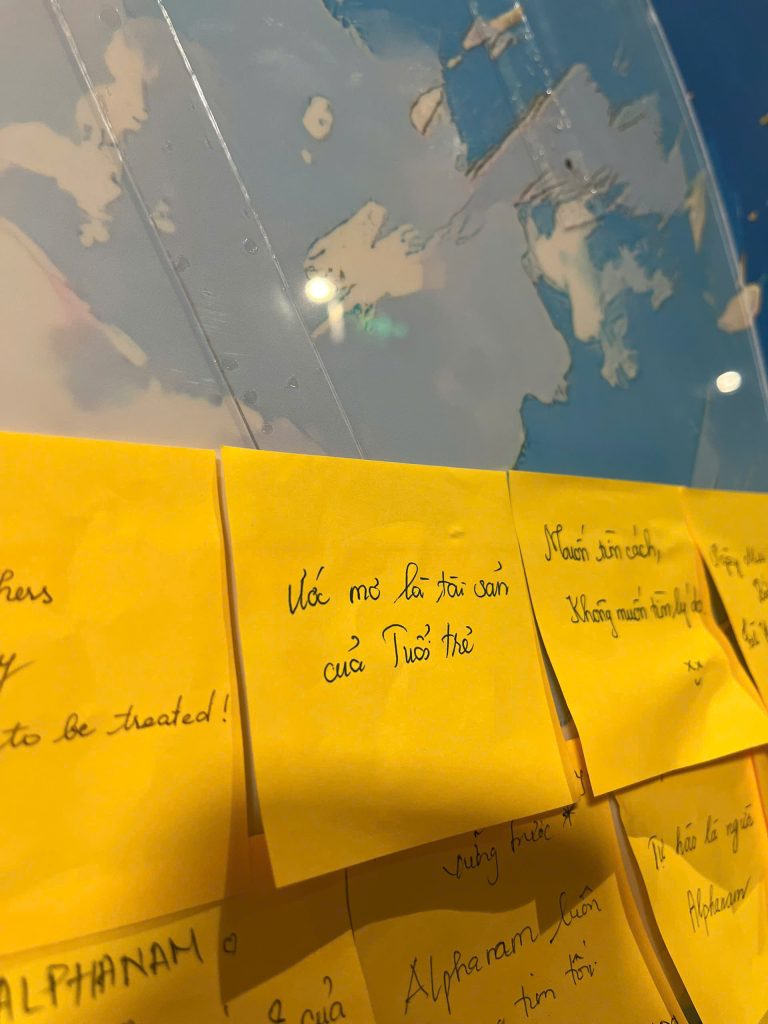 hers
y
to be treated!
Ước mơ là tài sản
của Tuổi trẻ
Muốn tìm cách,
Không muốn tìm lý do
Tự hào là người
Alphanam
vững bước *
Alphanam luôn
tìm tòi.
ALPHANAM ♡
của